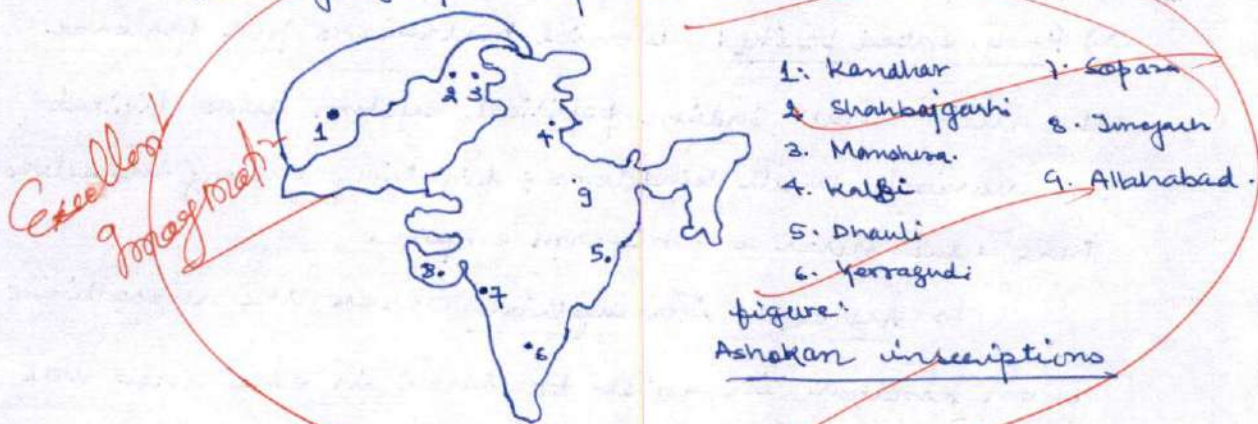 Excellent
Imagination
1
2 3
4
9
5
8
7
6
1. Kandhar
2 Shahbajgarhi
3. Manshera.
4. Kalsi
5. Dhauli
6. Yerragudi
7. Sopara
8. Junagarh
9. Allahabad.
figure:
Ashokan inscriptions